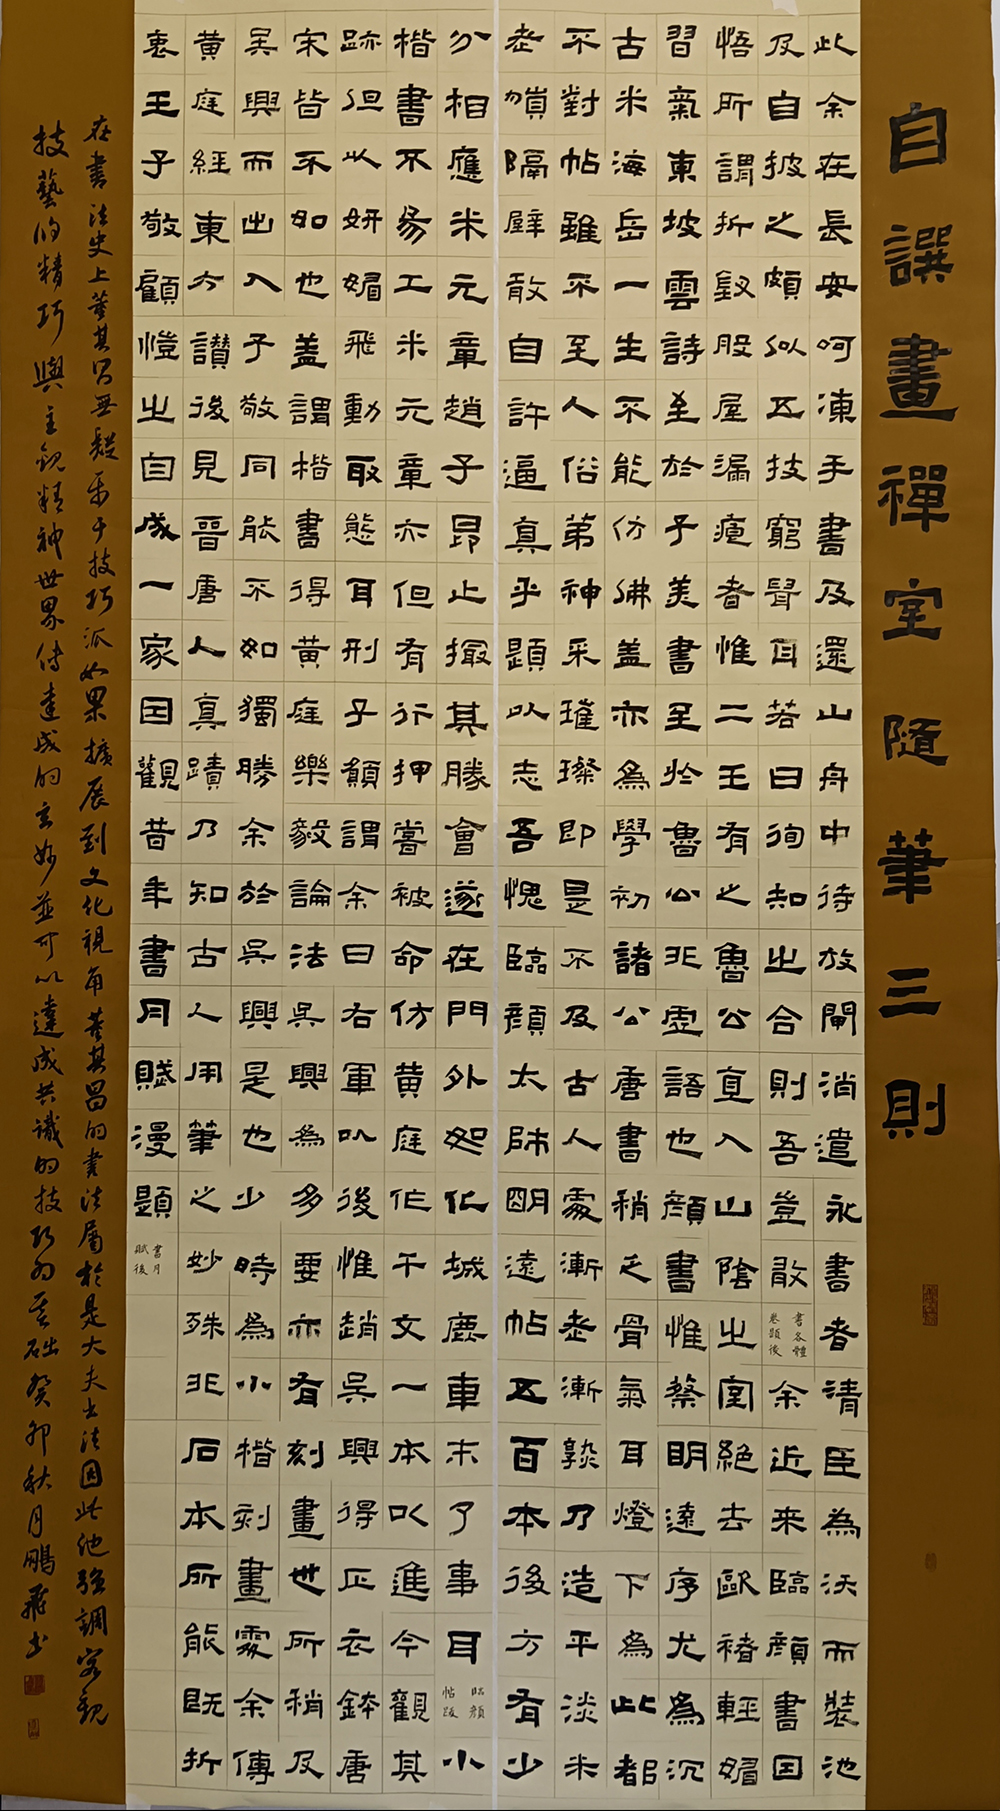 自譔畫禪室隨筆三則
此余在長安呵凍手書及還山舟中待放閘消遣永書者清臣為沃而裝池
及自披之頗似五技窮聲耳若曰徇知之合則吾豈敢書各體卷頭後余近来臨顏書因
悟所謂折釵股屋漏痕者惟二王有之魯公直入山陰之室絕去歐褚輕媚
習氣東坡雲詩至於子美書至於魯公非虛語也顏書惟蔡明遠序尤為沉
古米海岳一生不能仿佛盖亦為學初諸公唐書稍乏骨氣耳燈下為此都
不對帖雖不至人俗弟神采璀璨即是不及古人處漸老漸熟乃造平淡米
老嗊隔壁敢自許逼真乎題以志吾愧臨顏太師明遠帖五百本後方有少
分相應米元章趙子昂止撮其勝會遂在門外如化城鹿車未了事耳臨顏帖跋小
楷書不易工米元章亦但有行押嘗被命仿黃庭作千文一本以進今觀其
跡但以妍媚飛動取態耳刑子願謂余曰右軍以後惟趙吳興得正衣鉢唐
宋皆不如也盖謂楷書得黃庭樂毅論法吳興為多要亦有刻畫世所稍及
吳興而出入子敬同能不如獨勝余於吳興是也少時為小楷刻畫處余傳
黃庭經東方讚後見晉唐人真蹟乃知古人用筆之妙殊非石本所能既折
衷王子敬顧愷之自成一家因觀昔年書月賦漫題書月賦後
在書法史上董其昌無疑屬于技巧派如果擴展到文化視角董其昌的書法屬於是大夫書法因此他強調客觀
技藝的精巧與主觀精神世界傳達成的玄妙並可以達成共識的技巧為基础癸卯秋月鵬飛書